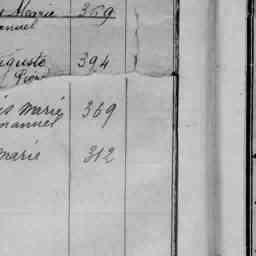 Marie 369
manuel
guste 394
is Marie 369
manuel
Marie 312